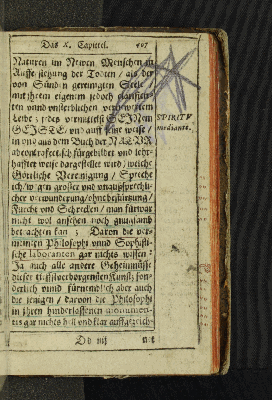 Das X. Capittel. 407
Naturen im Newen Menschen in
Aufferstehung der Todten / als der
von Sünden gereinigten Seele /
mit ihrem eigenen jedoch clarificir-
ten vnnd vnsterblichen
Leibe ; jedes vermittelst SEINem
GEISTE, vnd auff seine weise /
in vno aus dem Buch der NATVR
abcontrafectisch fürgebildet vnd lehr-
haffter weise dargestellet wird / welche
Göttliche Vereinigung / Spreche
ich / wegen grosser vnd vnaußsprechli-
cher verwunderung / ohne bestürtzung /
Furcht vnd Schrecken / man fürwar
nicht wol ansehen noch gnugsamb
betrachten kan ; Davon die ver-
meinten Philosophi vnnd Sophisti-
sche laboranten gar nichts wissen :
Ja auch alle andere Geheimnüsse
dieser tieffverborgensten Kunst / son-
derlich vnnd fürnemblich aber auch
die jenigen / davon die Philosophi
in ihren hinderlassenen monumen-
tis gar nichts hell vnd klar auffgezeich-
SPIRITV
mediante.